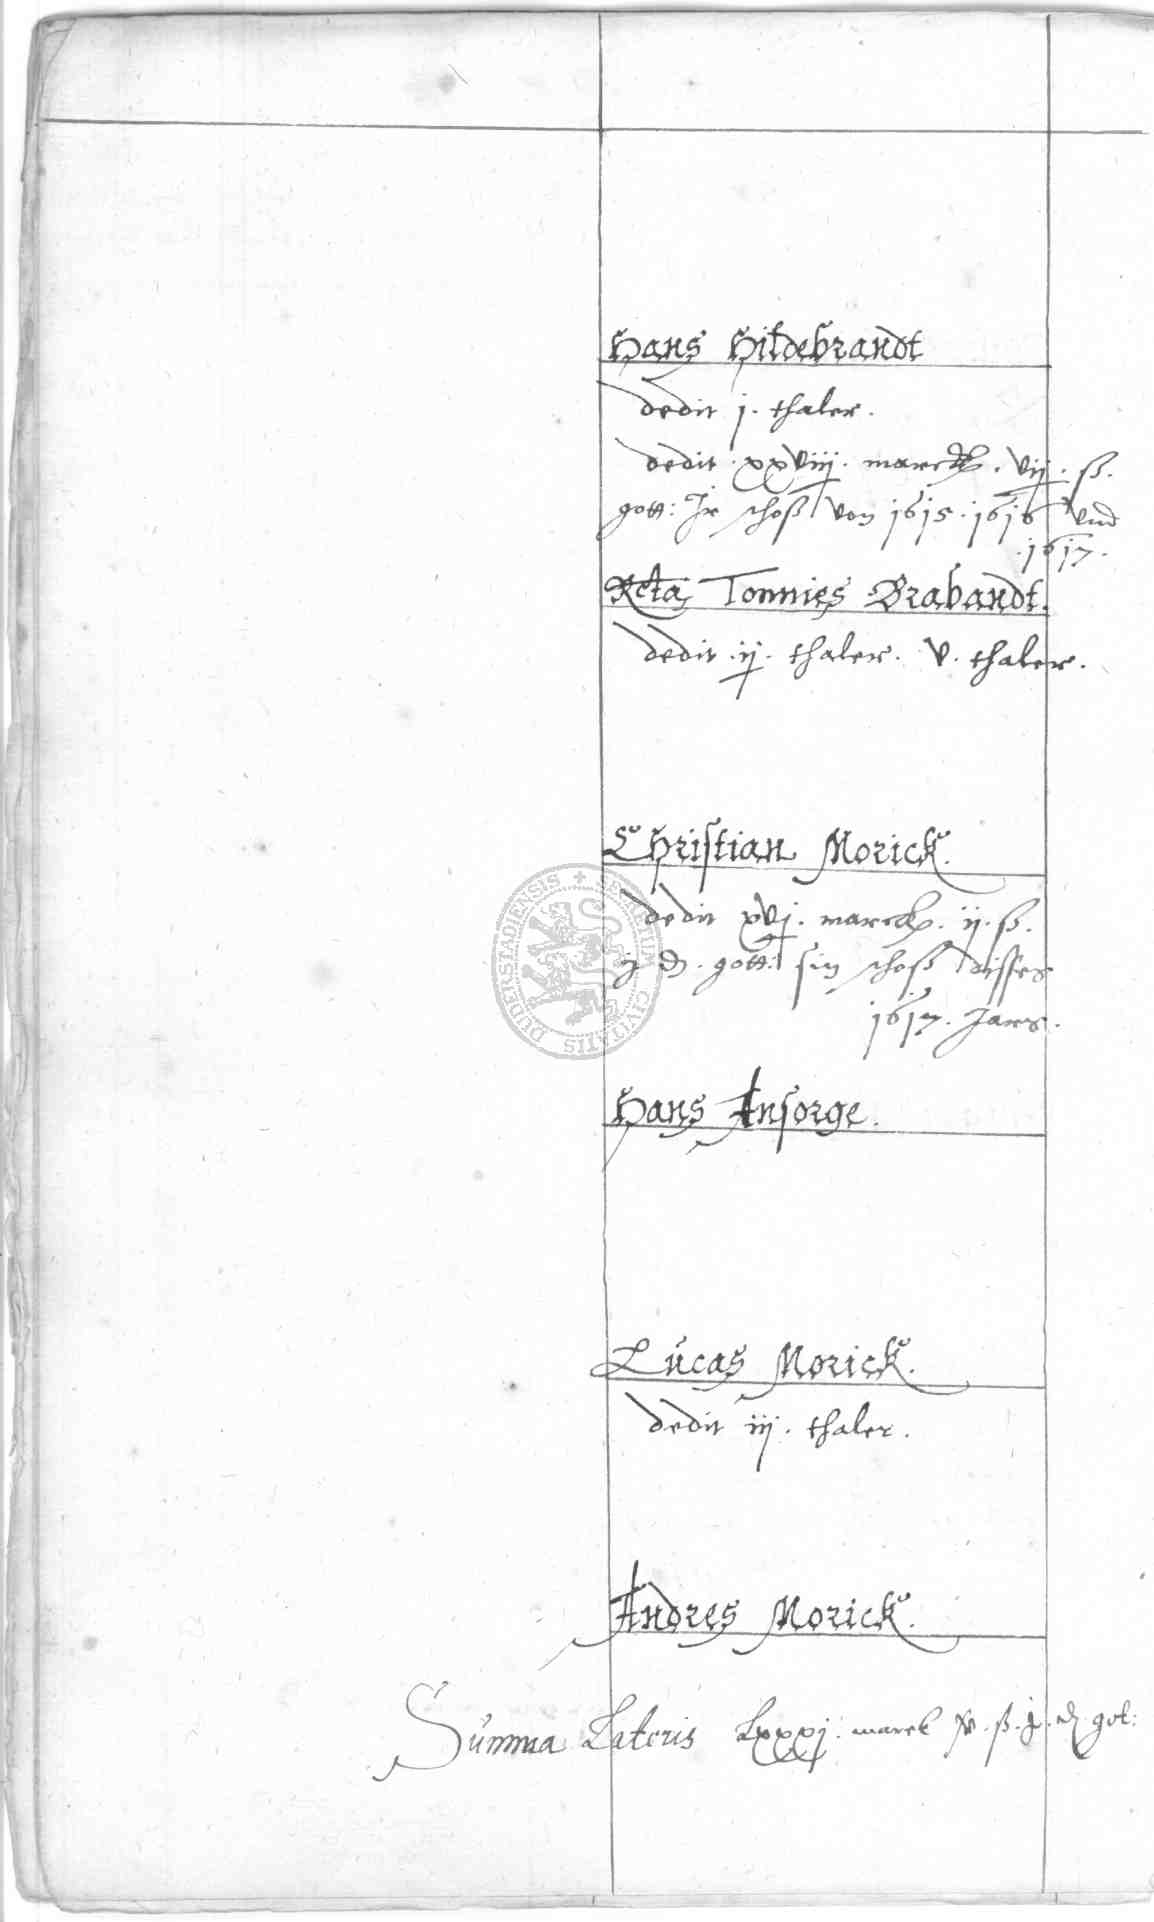 Hans Hildebrandt
dedit j. thaler.
dedit xxviij. marck. vij. ß.
gott: Jr schoß von 1615. 1616 vnd
.1617.
Relicta Tonnies Brabandt.
dedit .ij. thaler. v. thaler.
Christian Morick.
dedit xvj. marck. ij. ß.
j ₰. gott: sin schoß disses
1617. Jars.
Hans Ansorge.
Lucas Morick.
dedit iij. thaler.
Andres Morick.
Summa Lateris Lxxxj: marck ß. j. ₰ got:
SECRETUM CIVITATIS DUDERSTADIENSIS